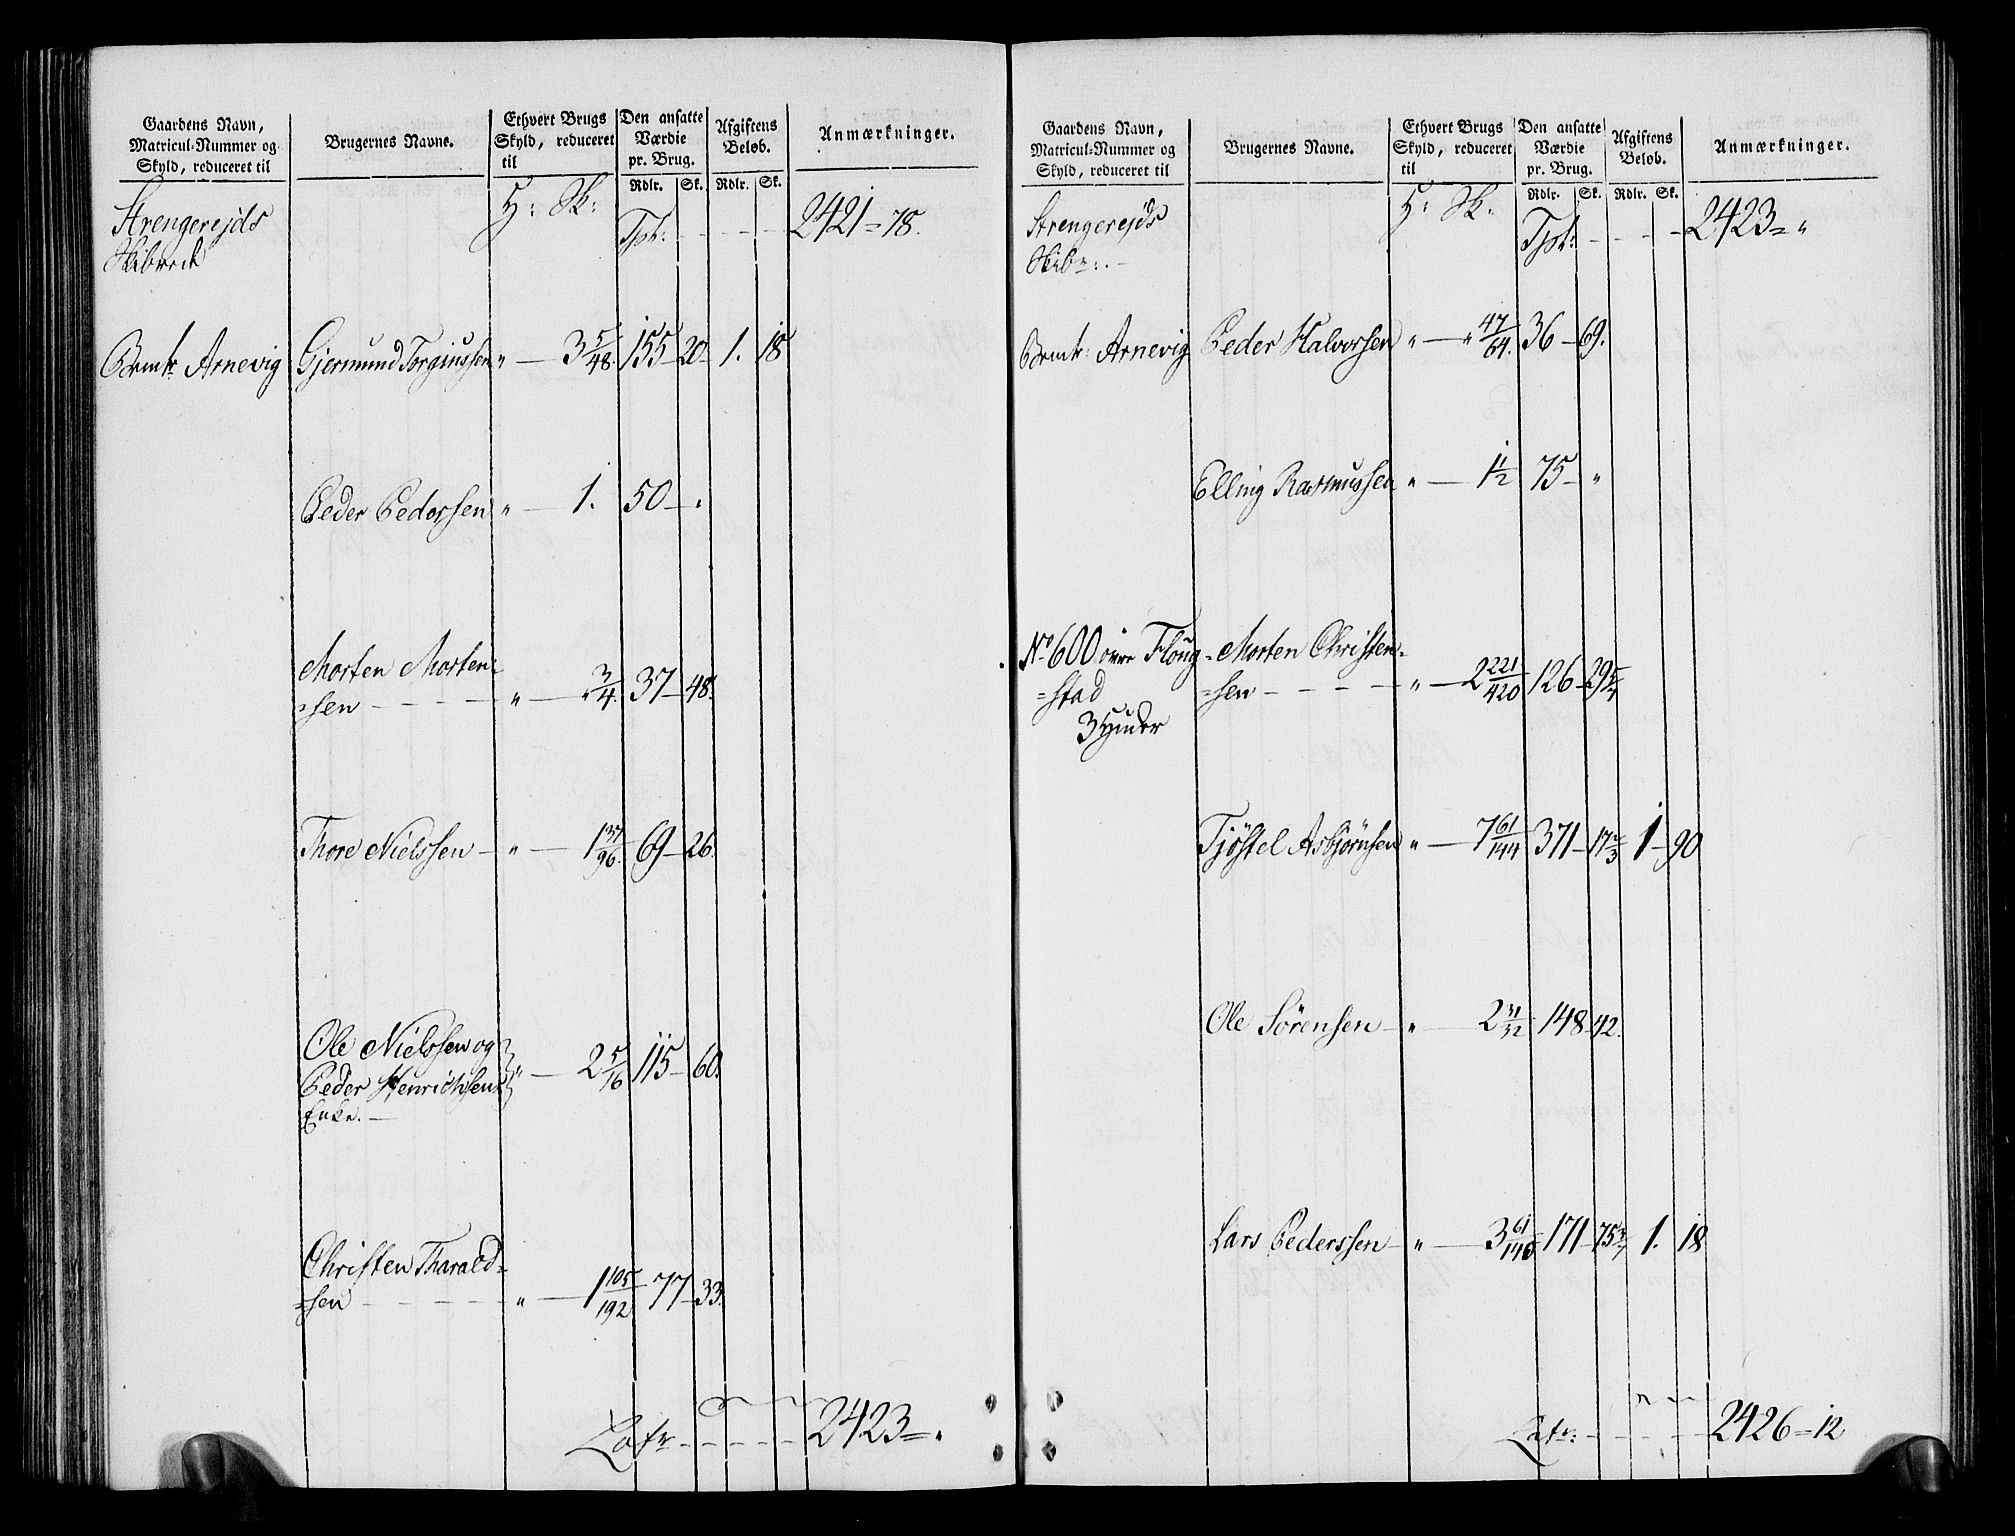 Gaardens Navn,
Matricul-Nummer og
Skyld, reduceret til
Brugernes Navne.
Ethvert Brugs
Skyld, reduceret
til
Den ansatte
Værdie
pr. Brug.
Rdlr. Sk.
Afgiftens
Beløb.
Rdlr. Sk.
Anmærkninger.
Strengerejds
Skibrede
H: Sk:
Tpt: - - - - 2421 = 78.
Arnevig Gjermund Torgiussen " — 3 5/48. 155 — 20 — 1. 18
Peder Pedersen " — 1. 50 — "
Morten Morten=
=sen - - - - " — " 3/4. 37 — 48.
Thore Nielssen — " — 1 37/96. 69 — 26.
Ole Nielssen og
Peder Henrichsens " — 2 5/16 115 — 60.
Enke. —
Christen Tharald=
=sen - - - - " — 1 105/192 77 — 33.
Latr - - - - 2423 = "
Gaardens Navn,
Matricul-Nummer og
Skyld, reduceret til
Brugernes Navne.
Ethvert Brugs
Skyld, reduceret
til
Den ansatte
Værdie
pr. Brug.
Rdlr. Sk.
Afgiftens
Beløb.
Rdlr. Sk.
Anmærkninger.
Strengerejds
Skibr: . —
H: Sk:
Tpt: - - - - 2423 = "
Arnevig Peder Halvorsen " — " 47/64. 36 — 69.
Elling Rasmussen " — 1 1/2 75 — "
No 600 øvre Floug= Morten Christen=
=stad =sen - - - - " — 2 221/420 126 — 29 5/7
3 Huder
Tjøstel Asbjørnsen " — 7 61/144 371 — 17 2/3 1 — 90
Ole Sörensen — " — 2 31/32 148 — 42.
Lars Pederssen — " — 3 61/140 171 — 75 3/7 1. 18
Latr: - - - - 2426 = 12